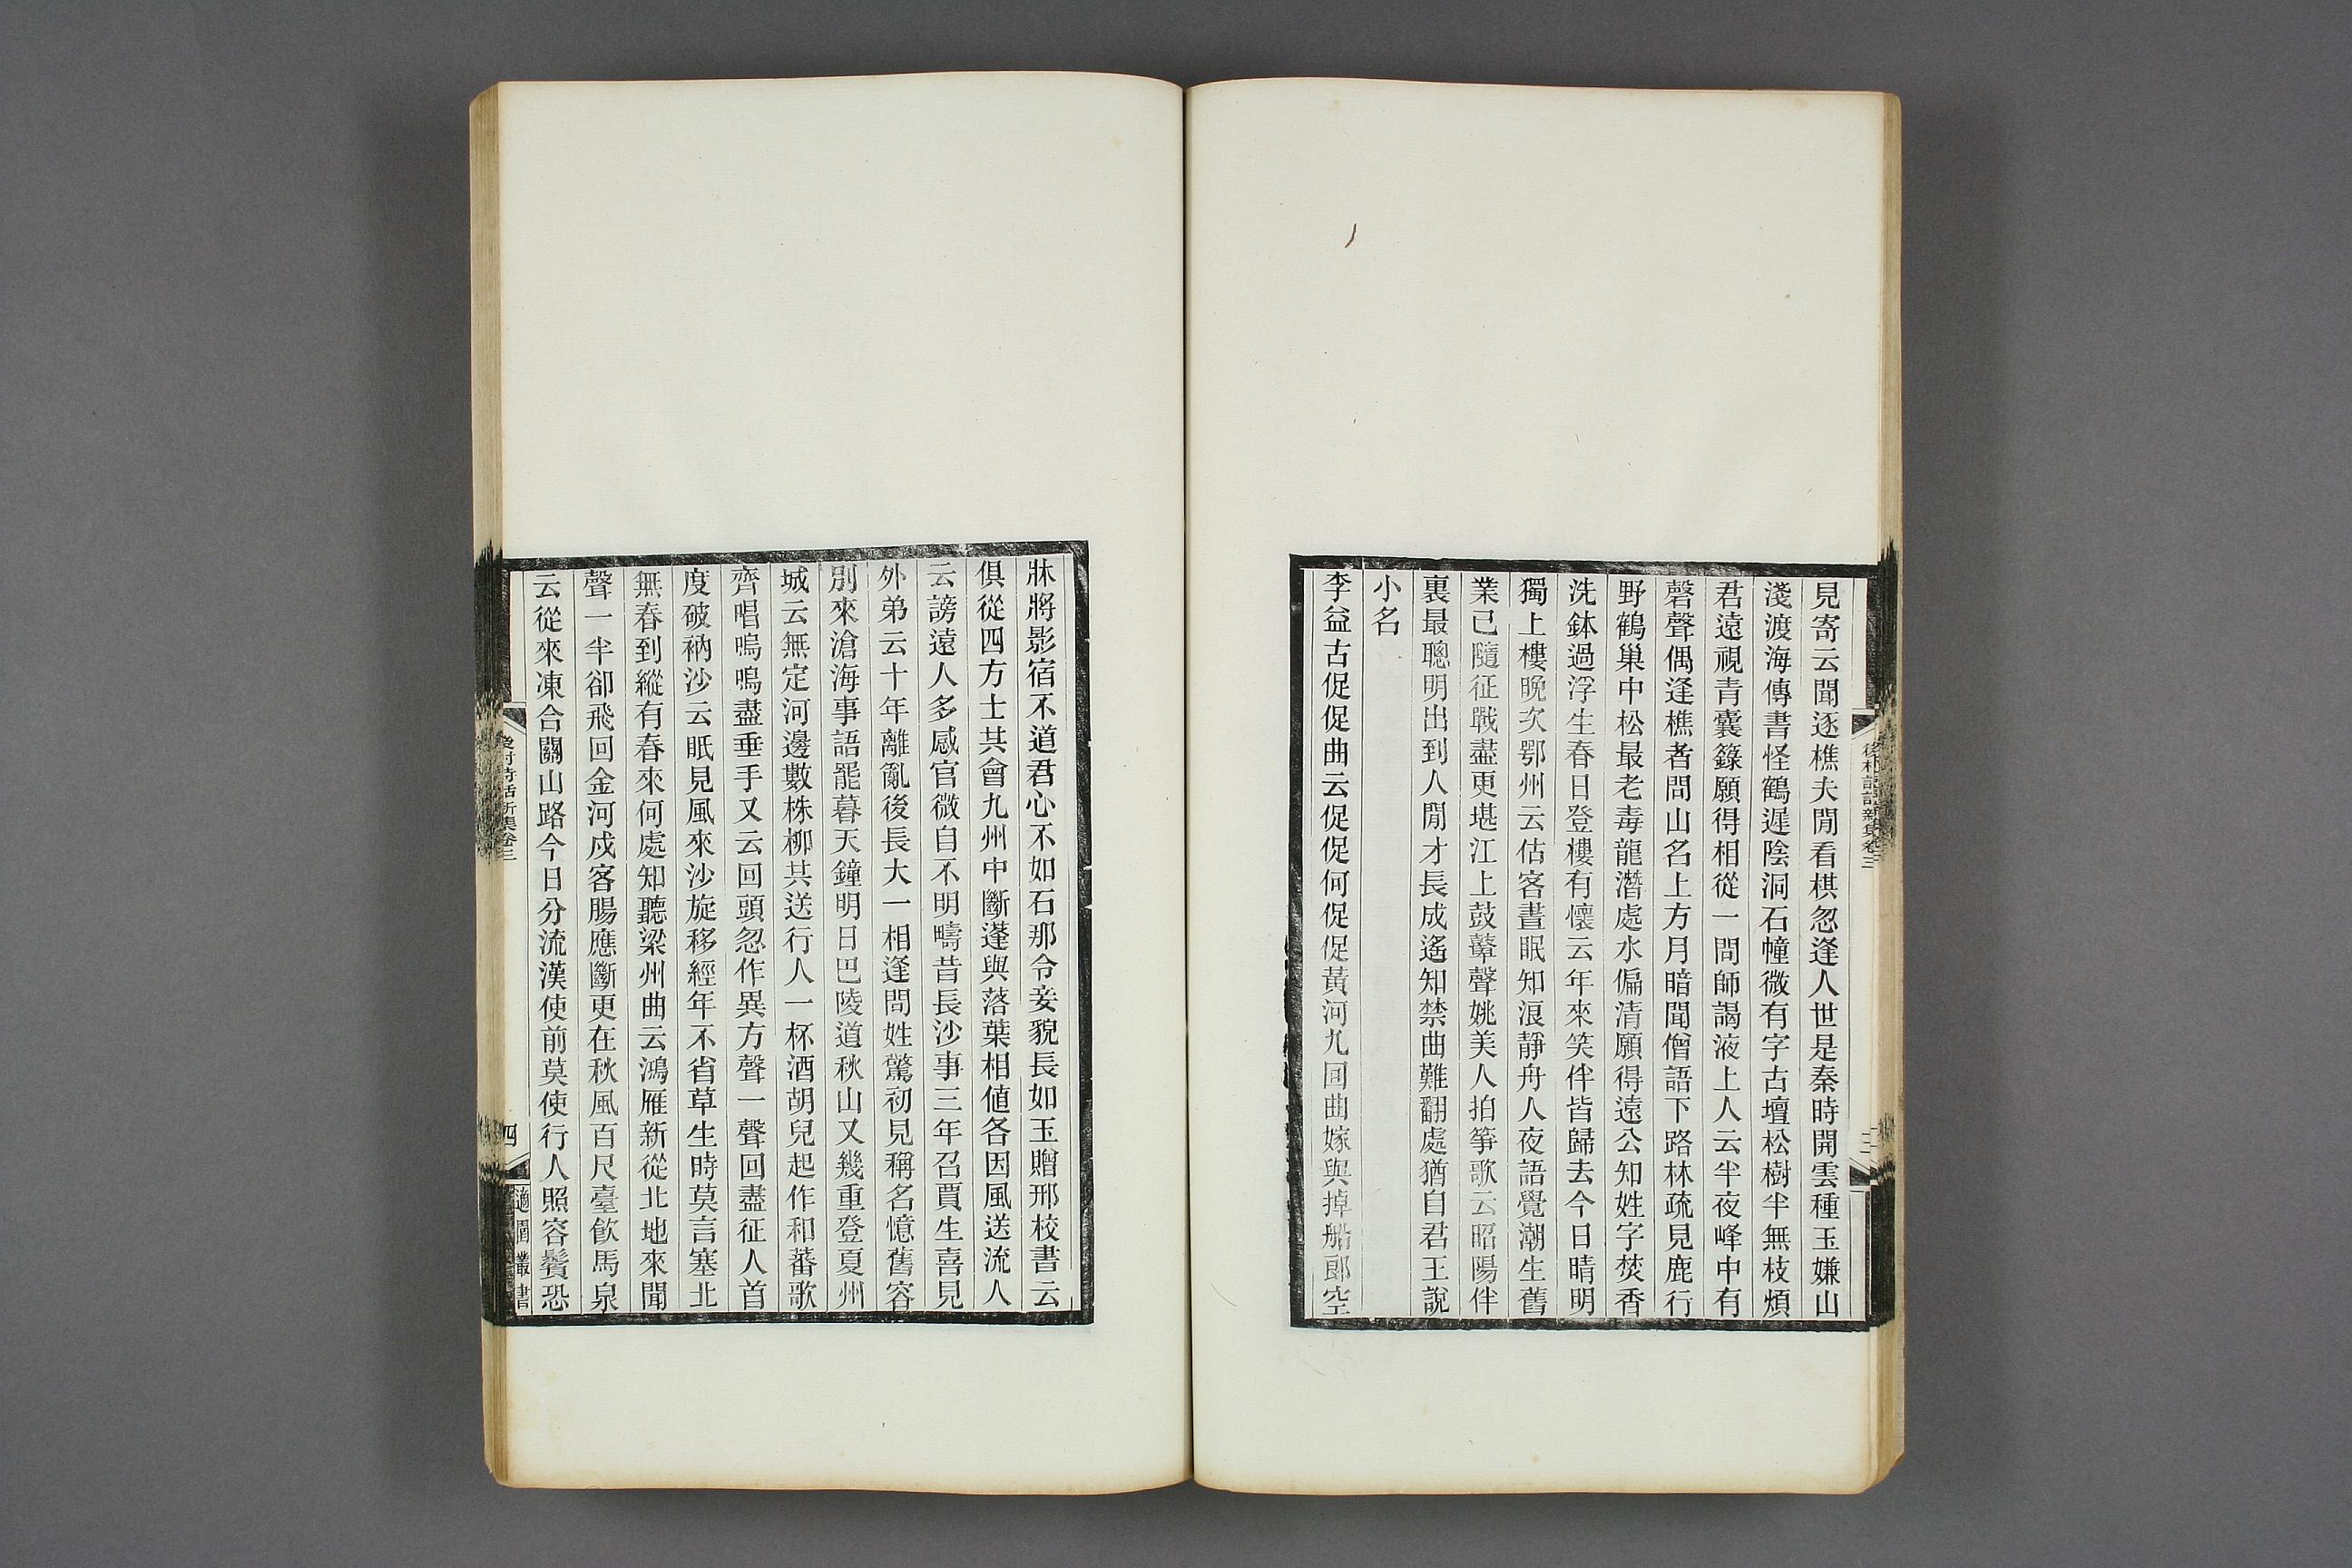 見寄云聞逐樵夫閒看棋忽逢人世是秦時開雲種玉嫌山
淺渡海傳書怪鶴遲陰洞石幢微有字古壇松樹半無枝煩
君遠視青囊籙願得相從一問師謁液上人云半夜峰中有
磬聲偶逢樵者問山名上方月暗聞僧語下路林疏見鹿行
野鶴巢中松最老毒龍潛處水偏清願得遠公知姓字焚香
洗鉢過浮生春日登樓有懷云年來笑伴皆歸去今日晴明
獨上樓晚次鄂州云估客晝眠知浪靜舟人夜語覺潮生舊
業已隨征戰盡更堪江上鼓鼙聲姚美人拍箏歌云昭陽伴
裏最聰明出到人閒才長成遙知禁曲難翻處猶自君王說
小名
李益古促促曲云促促何促促黃河九回曲嫁與掉船郎空
牀將影宿不道君心不如石那令妾貌長如玉贈邢校書云
俱從四方士共會九州中斷蓬與落葉相值各因風送流人
云謗遠人多感官微自不明疇昔長沙事三年召賈生喜見
外弟云十年離亂後長大一相逢問姓驚初見稱名憶舊容
別來滄海事語罷暮天鐘明日巴陵道秋山又幾重登夏州
城云無定河邊數株柳共送行人一杯酒胡兒起作和蕃歌
齊唱嗚嗚盡垂手又云回頭忽作異方聲一聲回盡征人首
度破衲沙云眠見風來沙旋移經年不省草生時莫言塞北
無春到縱有春來何處知聽梁州曲云鴻雁新從北地來聞
聲一半卻飛回金河戍客腸應斷更在秋風百尺臺飲馬泉
云從來凍合關山路今日分流漢使前莫使行人照容鬢恐
後村詩話新集卷三
四
適園叢書